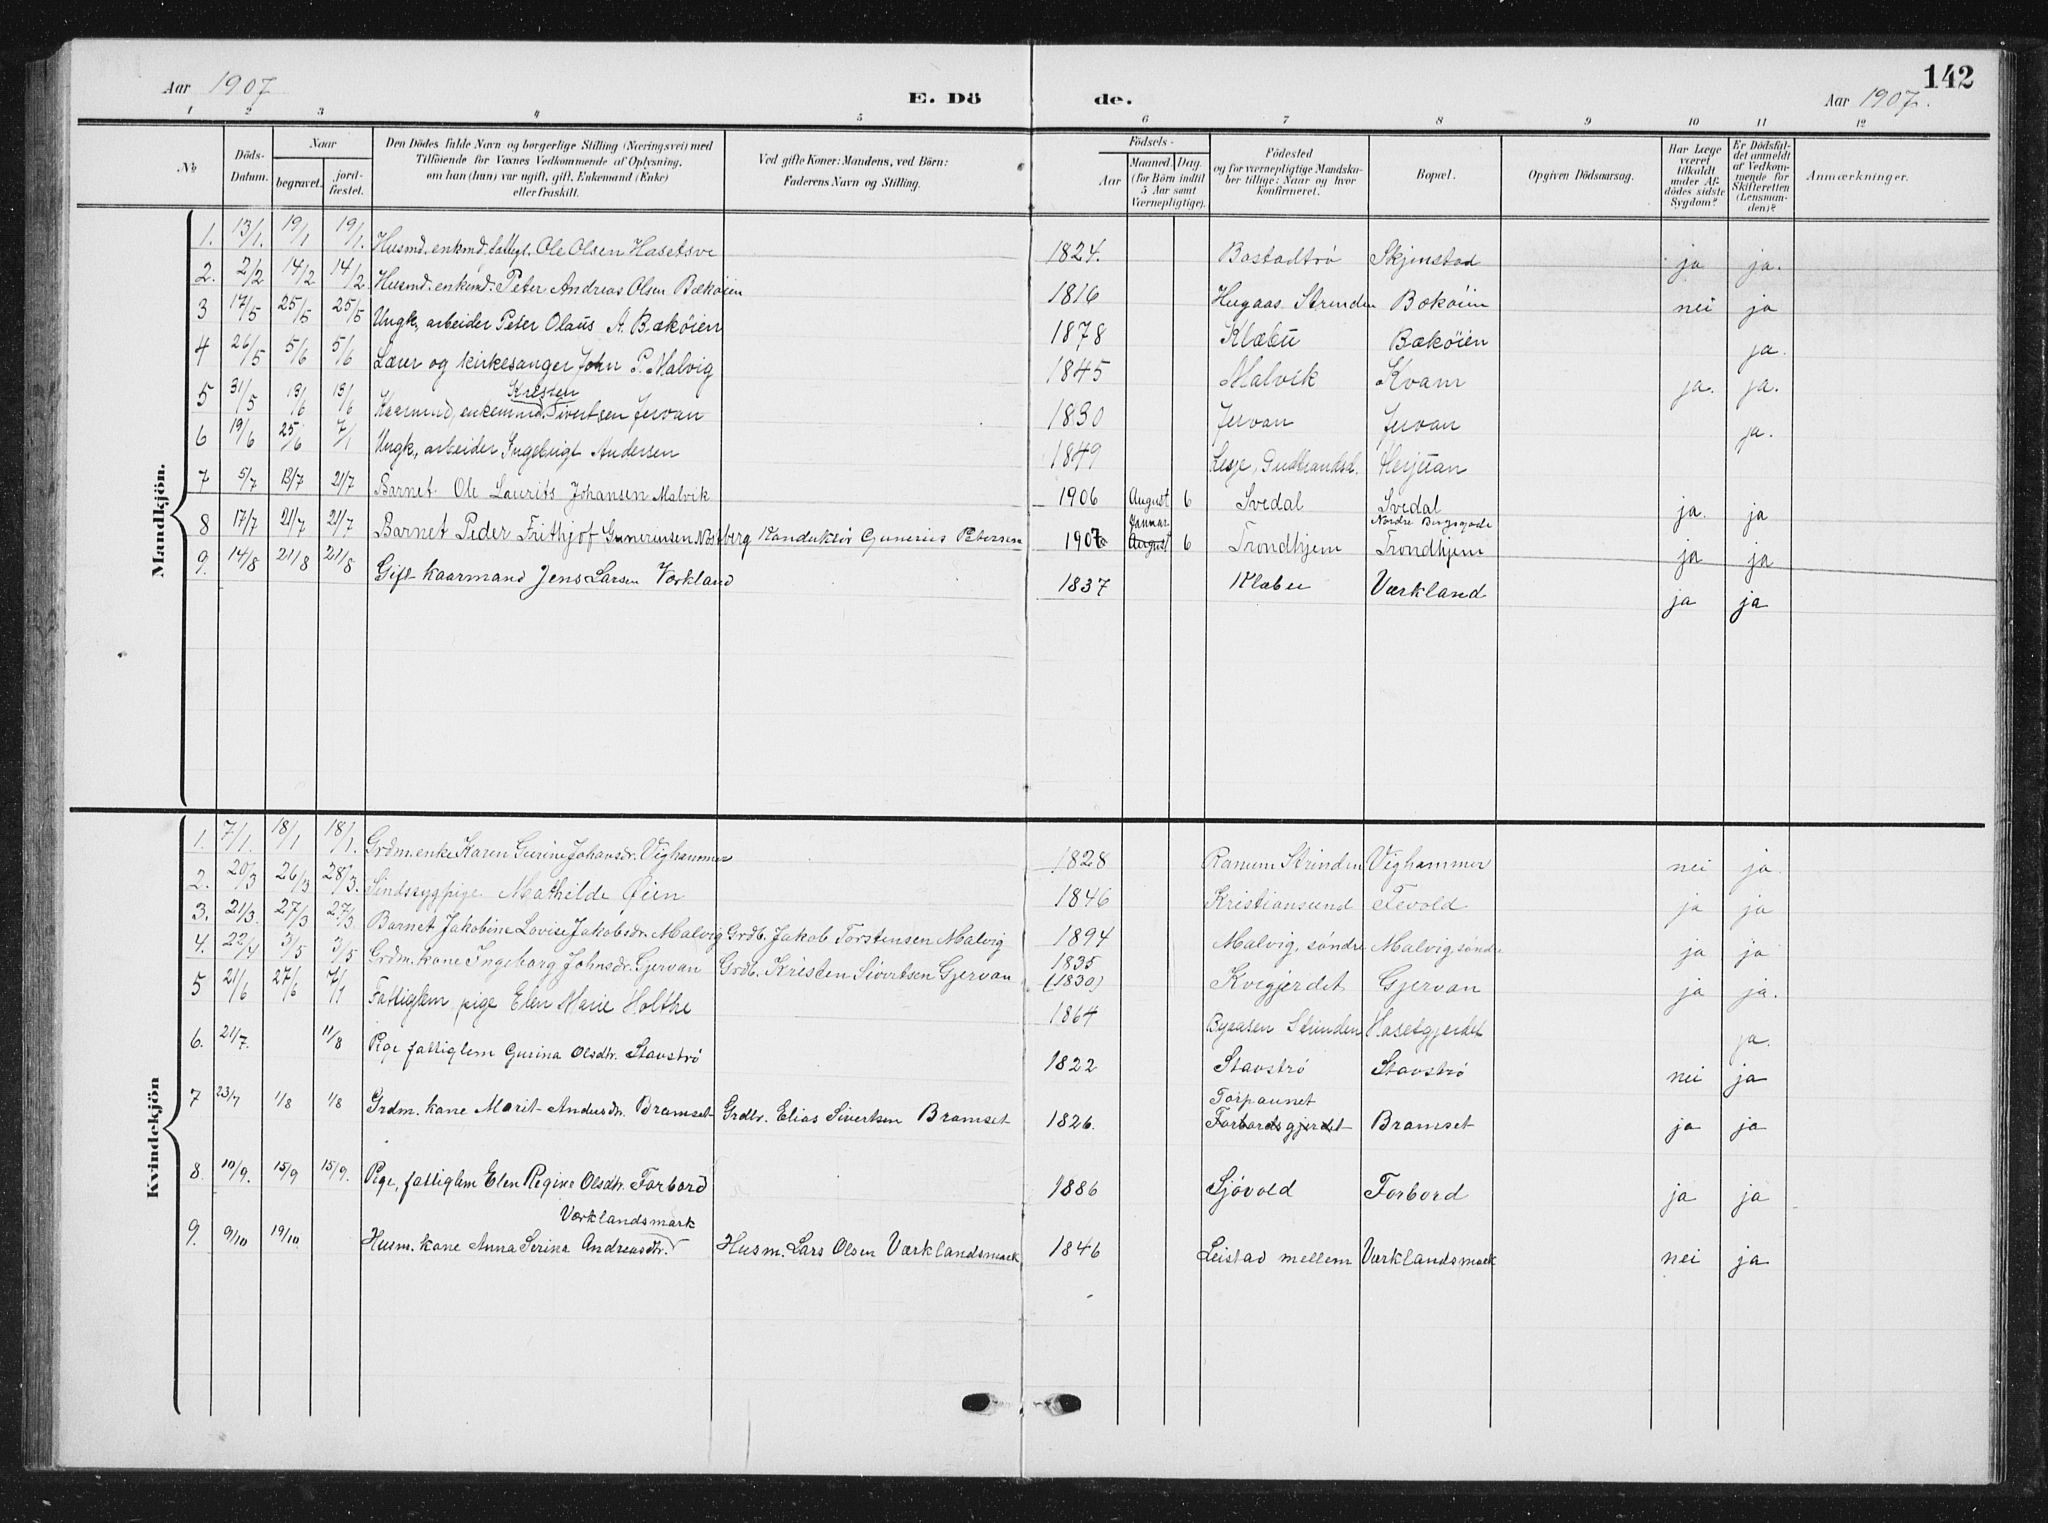 142
Aar 1907
E. Dö de.
Aar 1907.
1 2 3 4 5 6 7 8 9 10 11 12
No
Döds-Datum.
Naar
begravet.
jord-fæstet.
Den Dödes fulde Navn og borgerlige Stilling (Næringsvei) med
Tilföiende for Voxnes Vedkommende af Oplysning,
om han (hun) var ugift, gift, Enkemand (Enke)
eller fraskilt.
Ved gifte Koner: Mandens, ved Börn:
Faderens Navn og Stilling.
Födsels-
Aar
Maaned. Dag.
(for Börn indtil
5 Aar samt
Værnepligtige).
Födested
og for værnepligtige Mandska-
ber tillige: Naar og hvor
konfirmeret.
Bopæl.
Opgiven Dödsaarsag.
Har Læge
været
tilkaldt
under Af-
dödes sidste
Sygdom?
Er Dödsfal-
det anmeldt
af Vedkom-
mende for
Skifteretten
(Lensman-
den)?
Anmærkninger.
Mandkjön.
1. 13/1. 19/1 19/1. Husmd. enkmd. fattigl. Ole Olsen Hasetsve 1824. Bostadtrø Skjenstad ja ja.
2. 2/2 14/2 14/2. Husmd. enkemd. Peter Andreas Olsen Bækøien 1816 Hugaas. Strinden Bækøien nei ja
3 17/5 25/5 25/5 Ungk, arbeider Peter Olaus A. Bækøien 1878 Klæbu Bækøien ja.
4 26/5 5/6 5/6 Lærer og kirkesanger John P. Malvig 1845 Malvik Kvam ja. ja.
5 31/5 13/6 13/6 Kaarmnd, enkemnd. Kresten Sivertsen Jervan 1830 Jervan Jervan ja.
6 19/6 25/6 7/1 Ungk, arbeider Ingebrigt Andersen 1849 Lesje, Gudbrandsd. Hesjuan
7 5/7 13/7 21/7 Barnet. Ole Laurits Johansen Malvik 1906 August 6 Svedal Svedal ja. ja
8 17/7 21/7 21/7 Barnet Peder Frithjof Gunerinsen Nostberg Konduktør Gunerius Petersen 1907 Januar August 6 Trondhjem Nordre Bergsgade Trondhjem ja ja
9. 14/8 21/8 21/8 Gift kaarmand Jens Larsen Værkland 1837 Klæbu Værkland ja ja
Kvindekjön
1. 7/1. 18/1 18/1. Grdm. enke Karen Gurine Johansdr. Vighammer 1828 Ranum Strinden Vighammer nei ja.
2. 20/3 26/3 28/3. Sindssyg pige Mathilde Øien 1846 Kristiansund Fevold ja ja
3. 21/3. 27/3 27/3. Barnet Jakobine Lovise Jakobsdr. Malvig Grdb. Jakob Torstensen Malvig 1894 Malvig, søndre Malvig søndre ja ja
4. 22/4 3/5 3/5 Grdm. kone Ingeborg Johnsdr. Gjervan Grdb. Kristen Sivertsen Gjervan 1835 (1830) Kvigjerdet Gjervan ja ja.
5 21/6 27/6 7/1 Fattiglem, pige Elen Marie Holthe 1864 Byaasen Strinden Hasetgjerdet ja.
6. 21/7. 11/8 Pige fattiglem Gurina Olsdtr. Stavstrø 1822 Stavstrø Stavstrø nei ja
7 23/7 1/8 1/8 Grdm. kone Marit Andersdtr. Bramset Grdbr. Elias Sivertsen Bramset 1826. Torpaunet Forbordsgjerdet Bramset ja ja
8. 10/9. 15/9 15/9. Pige, fattiglem Elen Regine Olsdtr. Forbord 1886 Sjøvold Forbord ja ja
Værklandsmark
9. 9/10 19/10 Husm. kone Anna Serina Andreasdtr. Husm. Lars Olsen Værklandsmark 1846 Leistad mellem Værklandsmark nei ja